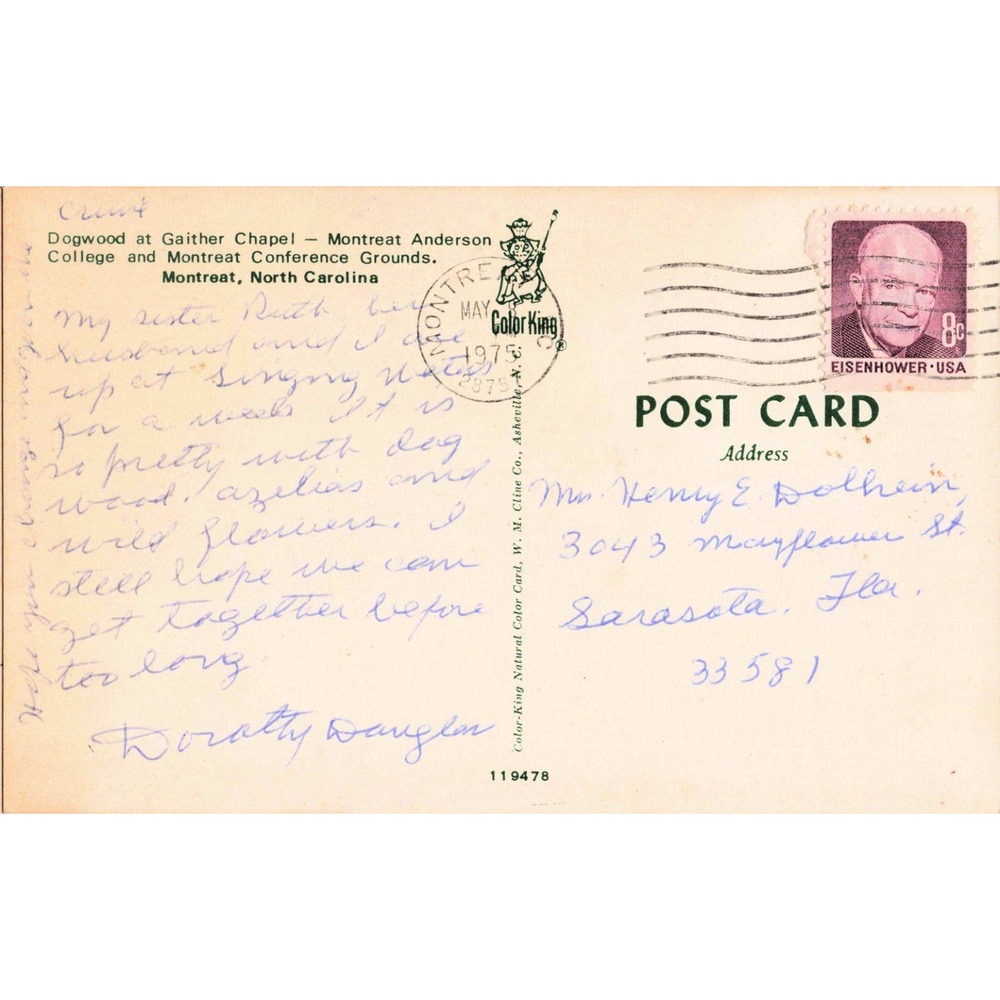 Dogwood at Gaither Chapel — Montreat Anderson
College and Montreat Conference Grounds.
Montreat, North Carolina
My sister Ruth her
husband and I are
up at Singing Waters
for a week It is
so pretty with dog
wood, azelias and
wild flowers. I
still hope we can
get together before
too long
Dorothy Douglas
Hope you
MONTREAT
MAY
1975
2875
Color King®
Color-King Natural Color Card, W. M. Cline Co., Asheville, N. C.
119478
8c
EISENHOWER · USA
POST CARD
Address
Mrs. Henry E. Dolhein,
3043 Mayflower St.
Sarasota. Fla.
33581